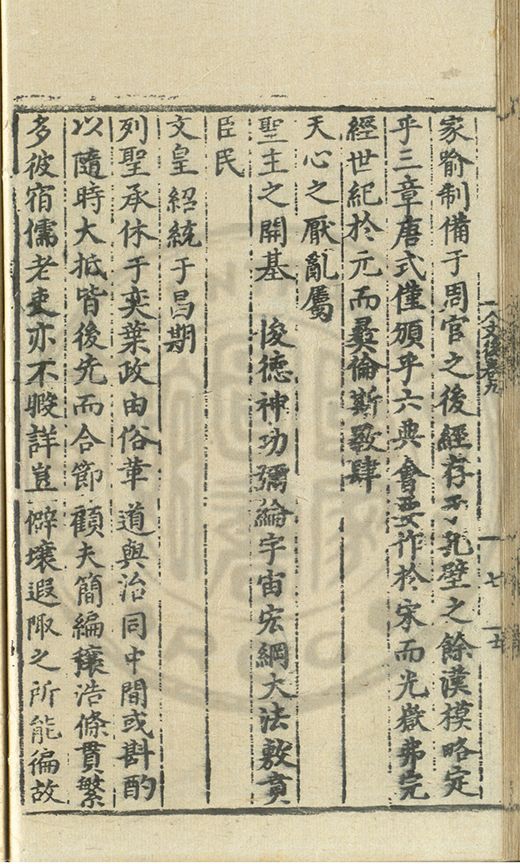 家喻制備于周官之後經存于孔壁之餘漢模略定
乎三章唐式僅頒乎六典會要作於宋而光嶽弗完
經世紀於元而彛倫斯斁肆
天心之厭亂屬
聖主之開基 俊德神功彌綸宇宙宏綱大法敷賁
臣民
文皇紹統于昌期
列聖承休于奕葉政由俗革道與治同中間或斟酌
以隨時大抵皆後先而合節顧夫簡編穰浩條貫繁
多彼宿儒老吏亦不暇詳豈僻壤遐陬之所能徧故